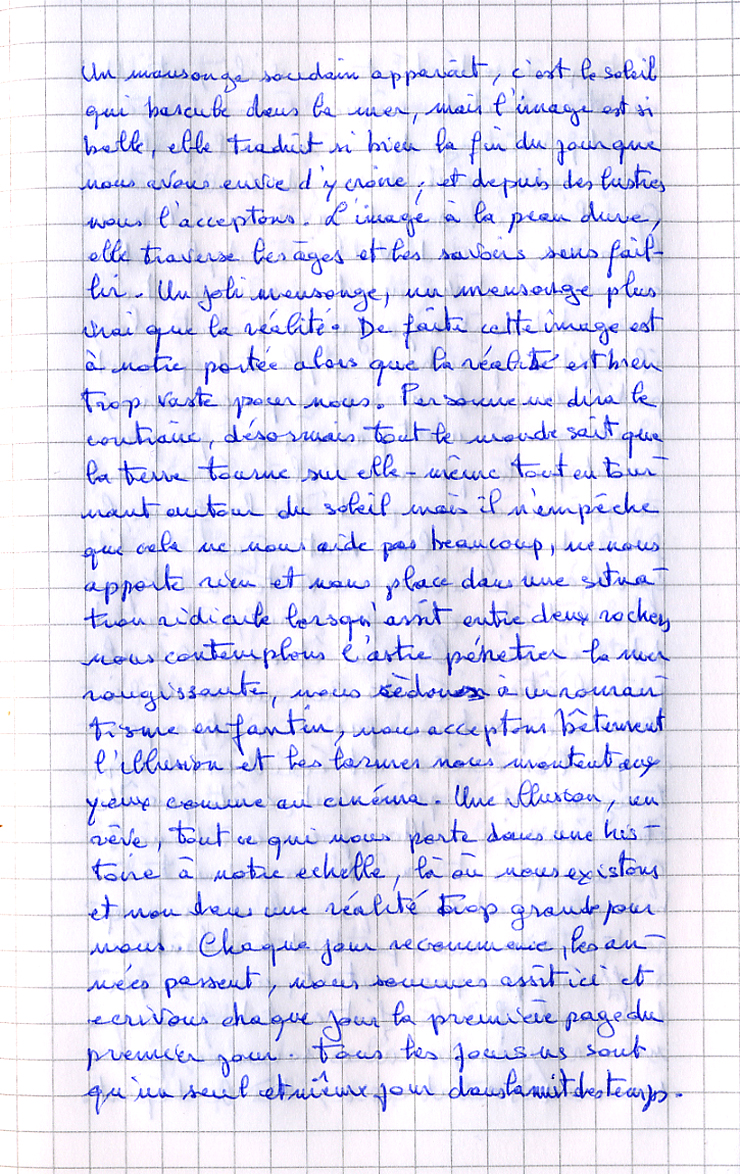 Un mensonge soudain apparait, c'est le soleil
qui bascule dans la mer, mais l'image est si
belle, elle traduit si bien la fin du jour que
nous avons envie d'y croire, et depuis des lustres
nous l'acceptons. L'image à la peau dure,
elle traverse les âges et les savoirs sans fail-
lir. Un joli mensonge, un mensonge plus
vrai que la réalité. De faite cette image est
à notre portée alors que la réalité est bien
trop vaste pour nous. Personne ne dira le
contraire, désormais tout le monde sait que
la terre tourne sur elle-même tout en tour-
nant autour du soleil mais il n'empêche
que cela ne nous aide pas beaucoup, ne nous
apporte rien et nous place dans une situa-
tion ridicule lorsqu'assit entre deux rochers
nous contemplons l'astre pénétrer la mer
rougissante, nous cèdons à un roman-
tisme enfantin, nous acceptons bêtement
l'illusion et les larmes nous montent aux
yeux comme au cinéma. Une illusion, un
rêve, tout ce qui nous porte dans une his-
toire à notre echelle, là où nous existons
et non dans une réalité trop grande pour
nous. Chaque jour recommence, les an-
nées passent, nous sommes assit ici et
ecrivons chaque jour la première page du
premier jour. Tous les jours ne sont
qu'un seul et même jour dans la nuit des temps.